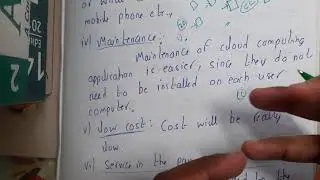 mobile phone etc.,
iv) Maintenance:
Maintenance of cloud computing
application is easier, since they do not
need to be installed on each user
computer.
v) Low cost: Cost will be really
low
vi) Service in the
the